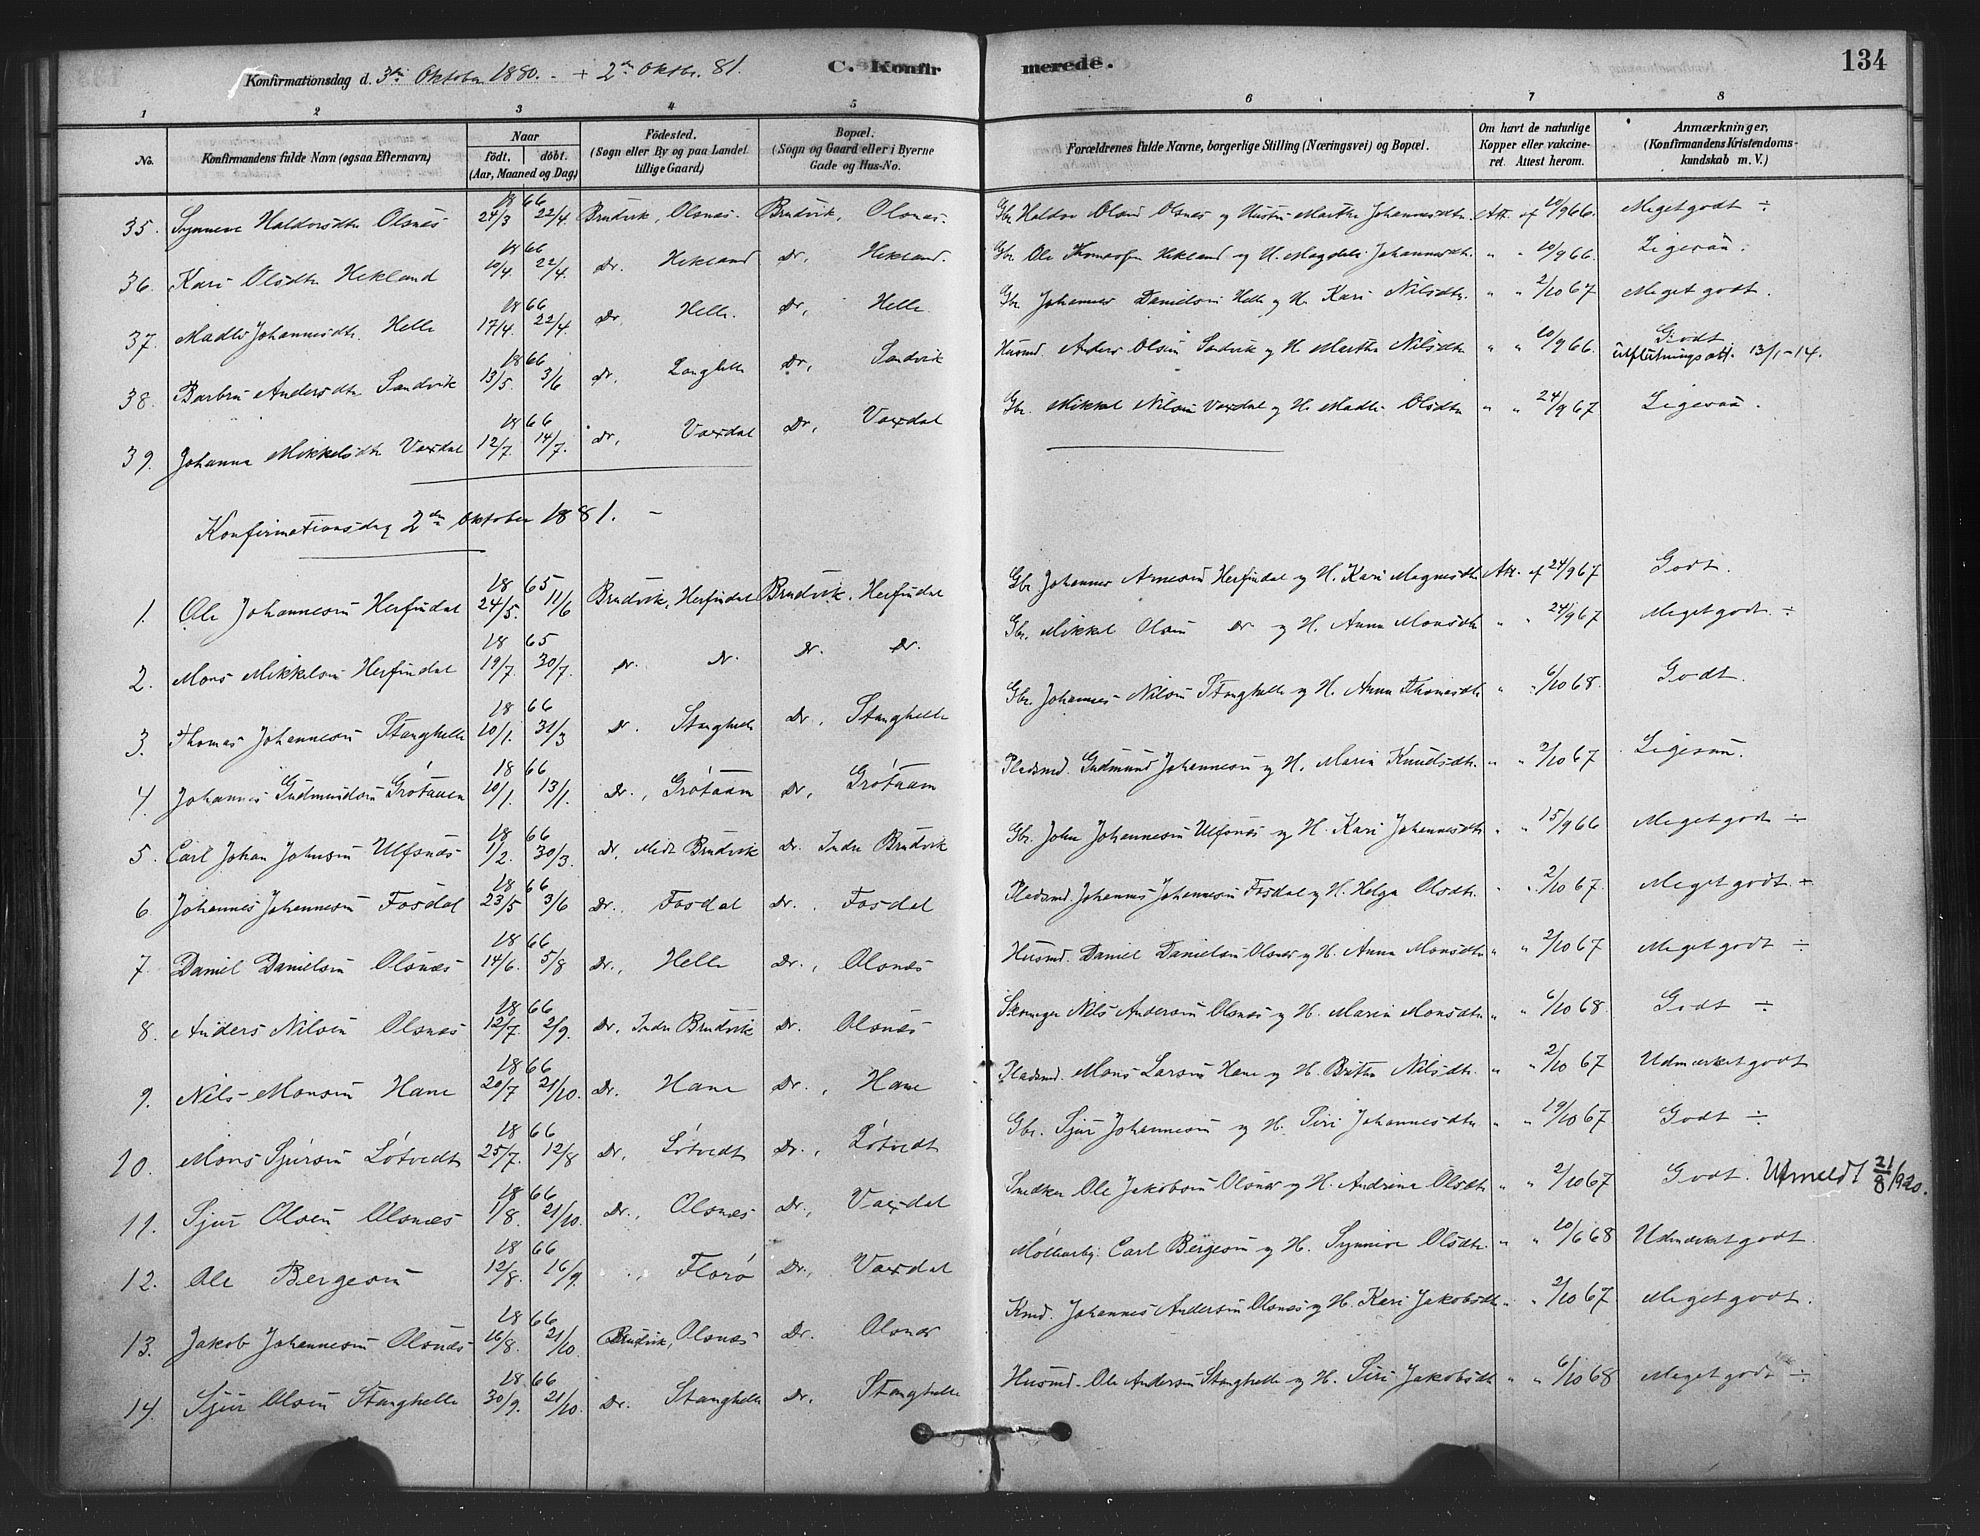 Konfirmationsdag d. 3die Oktober 1880. - + 2den Oktbr. 81.
C. Konfirmerede.
134
1 2 3 4 5 6 7 8
No.
Konfirmandens fulde Navn (ogsaa Efternavn)
Naar
födt. döbt.
(Aar, Maaned og Dag)
Födested.
(Sogn eller By og paa Landet
tillige Gaard)
Bopæl.
(Sogn og Gaard eller i Byerne
Gade og Hus-No.
Forældrenes fulde Navne, borgerlige Stilling (Næringsvei) og Bopæl.
Om havt de naturlige
Kopper eller vakcine-
ret. Attest herom.
Anmærkninger,
(Konfirmandens Kristendoms-
kundskab m. V.)
35. Synneve Haldorsdtr Olsnæs 18 66 24/3 22/4. Brudvik, Olsnæs. Brudvik, Olsnæs. Gbr Haldor Olsnæs og Hustru Martha Johannesdtr. Att. af 10/9 66. Meget godt ÷
36. Kari Olsdtr Hekland 18 66 10/4 22/4. Dr. Hekland Dr, Hekland. Gbr. Ole Hekland og H. Magdeli Johannesdtr. " " 10/9 66. Ligesaa.
37. Madli Johannesdtr. Helle 18 66 17/4. 22/4. Dr. Helle. Dr, Helle. Gbr. Johannes Danielsen Helle og H. Kari Nilsdtr. " " 2/10 67 Meget godt.
38. Barbru Andersdtr Sandvik 18 66 13/5. 3/6 Dr. Langhelle Dr, Sandvik Husmd. Anders Olsen Sandvik og H. Martha Nilsdtr " " 10/9 66. Godt
utflutningsatt. 13/1-14.
39. Johanna Mikkelsdtr Vaxdal 18 66 12/7. 14/7. Dr, Vaxdal Dr, Vaxdal Gbr. Mikkel Nilsen Vaxdal og H. Madli Olsdtr " " 24/9 67 Ligesaa.
Konfirmationsdag 2den Oktober 1881. -
1. Ole Johannesen Herfindal 18 65 24/5. 11/6 Brudvik, Herfindal Brudvik, Herfindal Gbr Johannes Arnesen Herfindal og H. Kari Magnesdtr Att. af 24/9 67 Godt.
2. Mons Mikkelsen Herfindal 18 65 19/7. 30/7. Dr. Dr. Dr. Dr. Gbr. Mikkel Olsen Dr og H. Anna Monsdtr " " 24/9 67 Meget godt ÷
3. Thomas Johannesen Stanghelle 18 66 10/1. 31/3 Dr. Stanghelle Dr, Stanghelle Gbr. Johannes Nilsen Stanghelle og H. Anna Thomasdtr " " 6/10 68. Godt.
4. Johannes Gudmundsen Grötaaen 18 66 10/1. 13/1. Dr., Grötaaen Dr, Grötaaen Pladsmd. Gudmund Johannesen og H. Maria Knudsdtr. " " 2/10 67 Ligesaa.
5. Carl Johan Johnsen Ulfsnæs 18 66 1/2. 30/3. Dr, Midt Brudvik Dr. Indre Brudvik Gbr. John Johannesen Ulfsnæs og H. Kari Johannesdtr " " 15/9 66 Meget godt ÷
6. Johannes Johannesen Fosdal 18 66 23/5 3/6 Dr., Fosdal Dr. Fosdal Pladsmd. Johannes Johannesen Fosdal og H. Helga Olsdtr. " " 2/10 67. Meget godt. ÷
7. Daniel Danielsen Olsnæs 18 66 14/6. 5/8 Dr., Helle Dr., Olsnæs Husmd. Daniel Danielsen Olsnæs og H. Anna Monsdtr " " 2/10 67 Meget godt ÷
8. Anders Nilsen Olsnæs 18 66 12/7. 2/9. Dr, Indre Brudvik Dr. Olsnæs Nils Andersen Olsnæs og H. Maria Monsdtr " " 6/10 68. Godt ÷
9. Nils Monsen Hane 18 66 20/7 21/10. Dr. Hane Dr., Hane Pladsmd. Mons Larsen Hane og H. Britha Nilsdtr. " " 2/10 67 Udmærket godt
10. Mons Sjursen Lötvedt 18 66 25/7. 12/8 Dr, Lötvedt Dr., Lötvedt Gbr. Sjur Johannesen og H. Siri Johannesdtr " " 19/10 67 Godt ÷
11. Sjur Olsen Olsnæs 18 66 1/8. 21/10. Dr., Olsnæs Dr., Vaxdal Snedker Ole Jakobsen Olsnæs og H. Andrina Olsdtr " " 2/10 67 Godt. Utmeldt 21/8 1920.
12. Ole Bergesen 18 66 12/8. 16/9. Florö Dr., Vaxdal Möllearb. Carl Bergesen og H. Synneve Olsdtr. " " 10/6 68 Udmærket godt.
13. Jakob Johannesen Olsnæs 18 66 16/8. 21/10 Brudvik, Olsnæs Dr. Olsnæs Kmd. Johannes Andersen Olsnæs og H. Kari Jakobsdtr " " 2/10 67 Meget godt.
14. Sjur Olsen Stanghelle 18 66 30/9. 21/10. Dr. Stanghelle Dr. Stanghelle Husmd. Ole Andersen Stanghelle og H. Siri Jakobsdtr " " 6/10 68 Meget godt ÷